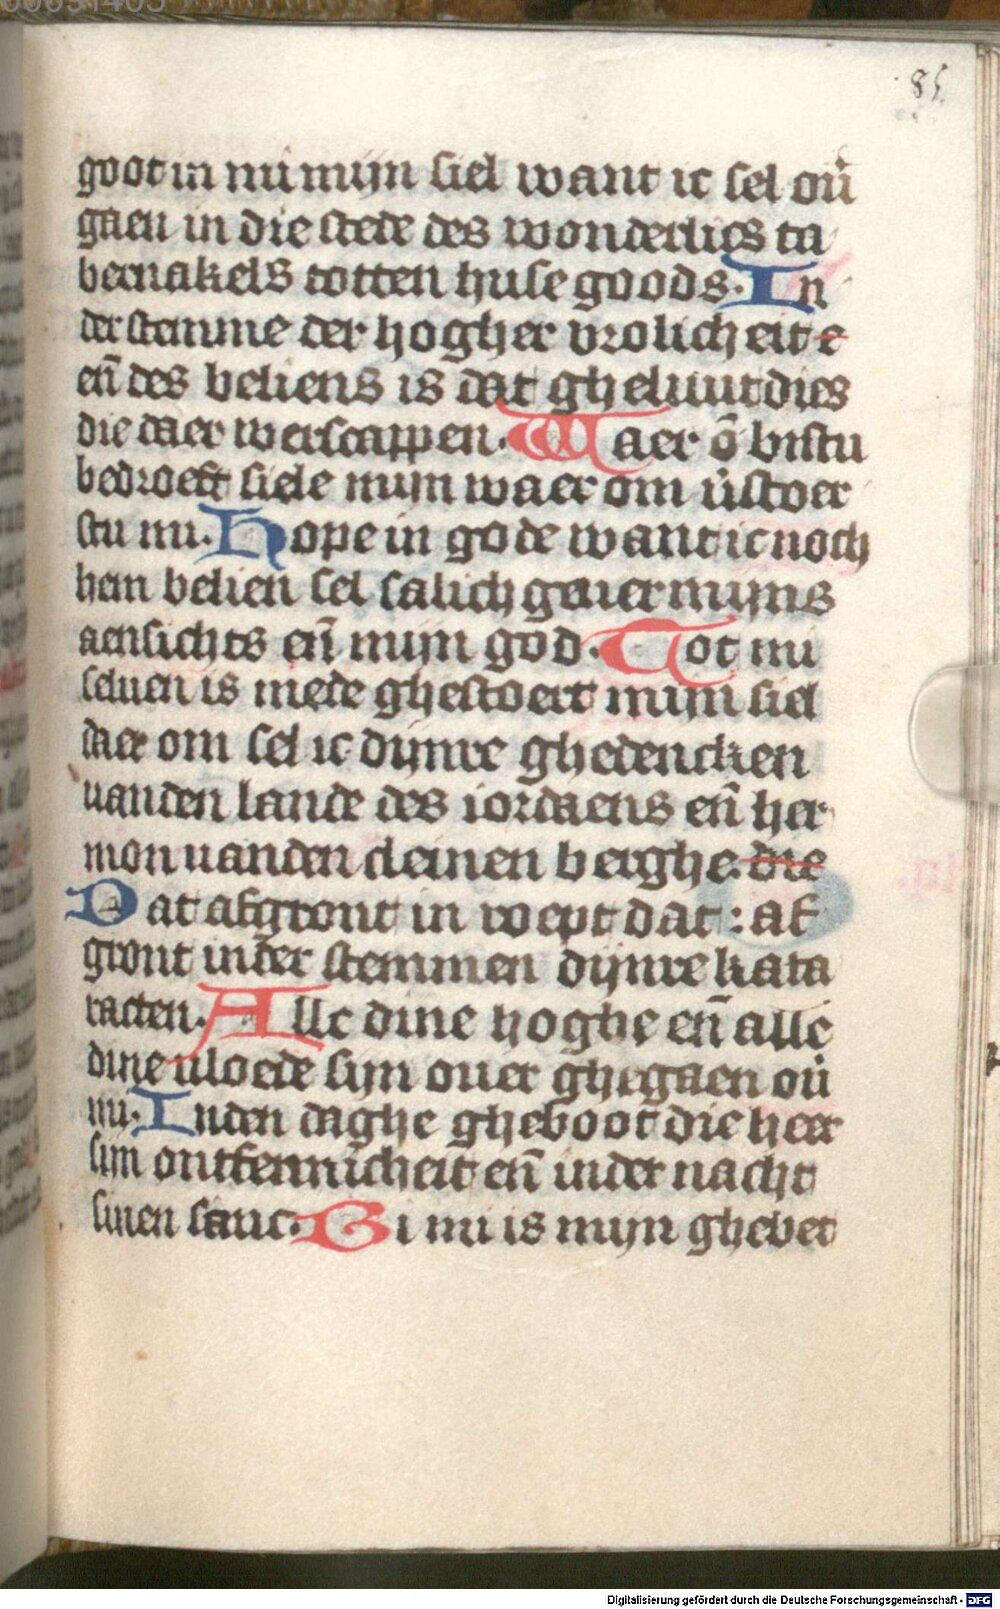 85
goot in mi mijn siel want ic sel ou̅
gaen in die stede des wonderlics ta
bernakels totten huse goods. In
der stemme der hogher vrolicheit e
en̅ des beliens is dat gheluut dies
die daer werscappen. Waer o̅ bistu
bedroeft siele mijn waer om v̅stoer
stu mi. Hope in gode want ic noch
hem belien sel salich gever mijns
aensichts en̅ mijn god. Tot mi
selven is mede ghestoert mijn siel
daer om sel ic dijnre ghedencken
vanden lande des iordaens en̅ her
mon vanden cleinen berghe. die
Dat afgront in roept dat : af
gront inder stemmen dijnre kata
racten. Alle dine hoghe en̅ alle
dine vloede sijn over ghegaen ou̅
mi. Inden daghe gheboot die heer
sijn ontfermicheit en̅ inder nacht
sinen sanc. Bi mi is mijn ghebet
Digitalisierung gefördert durch die Deutsche Forschungsgemeinschaft - DFG